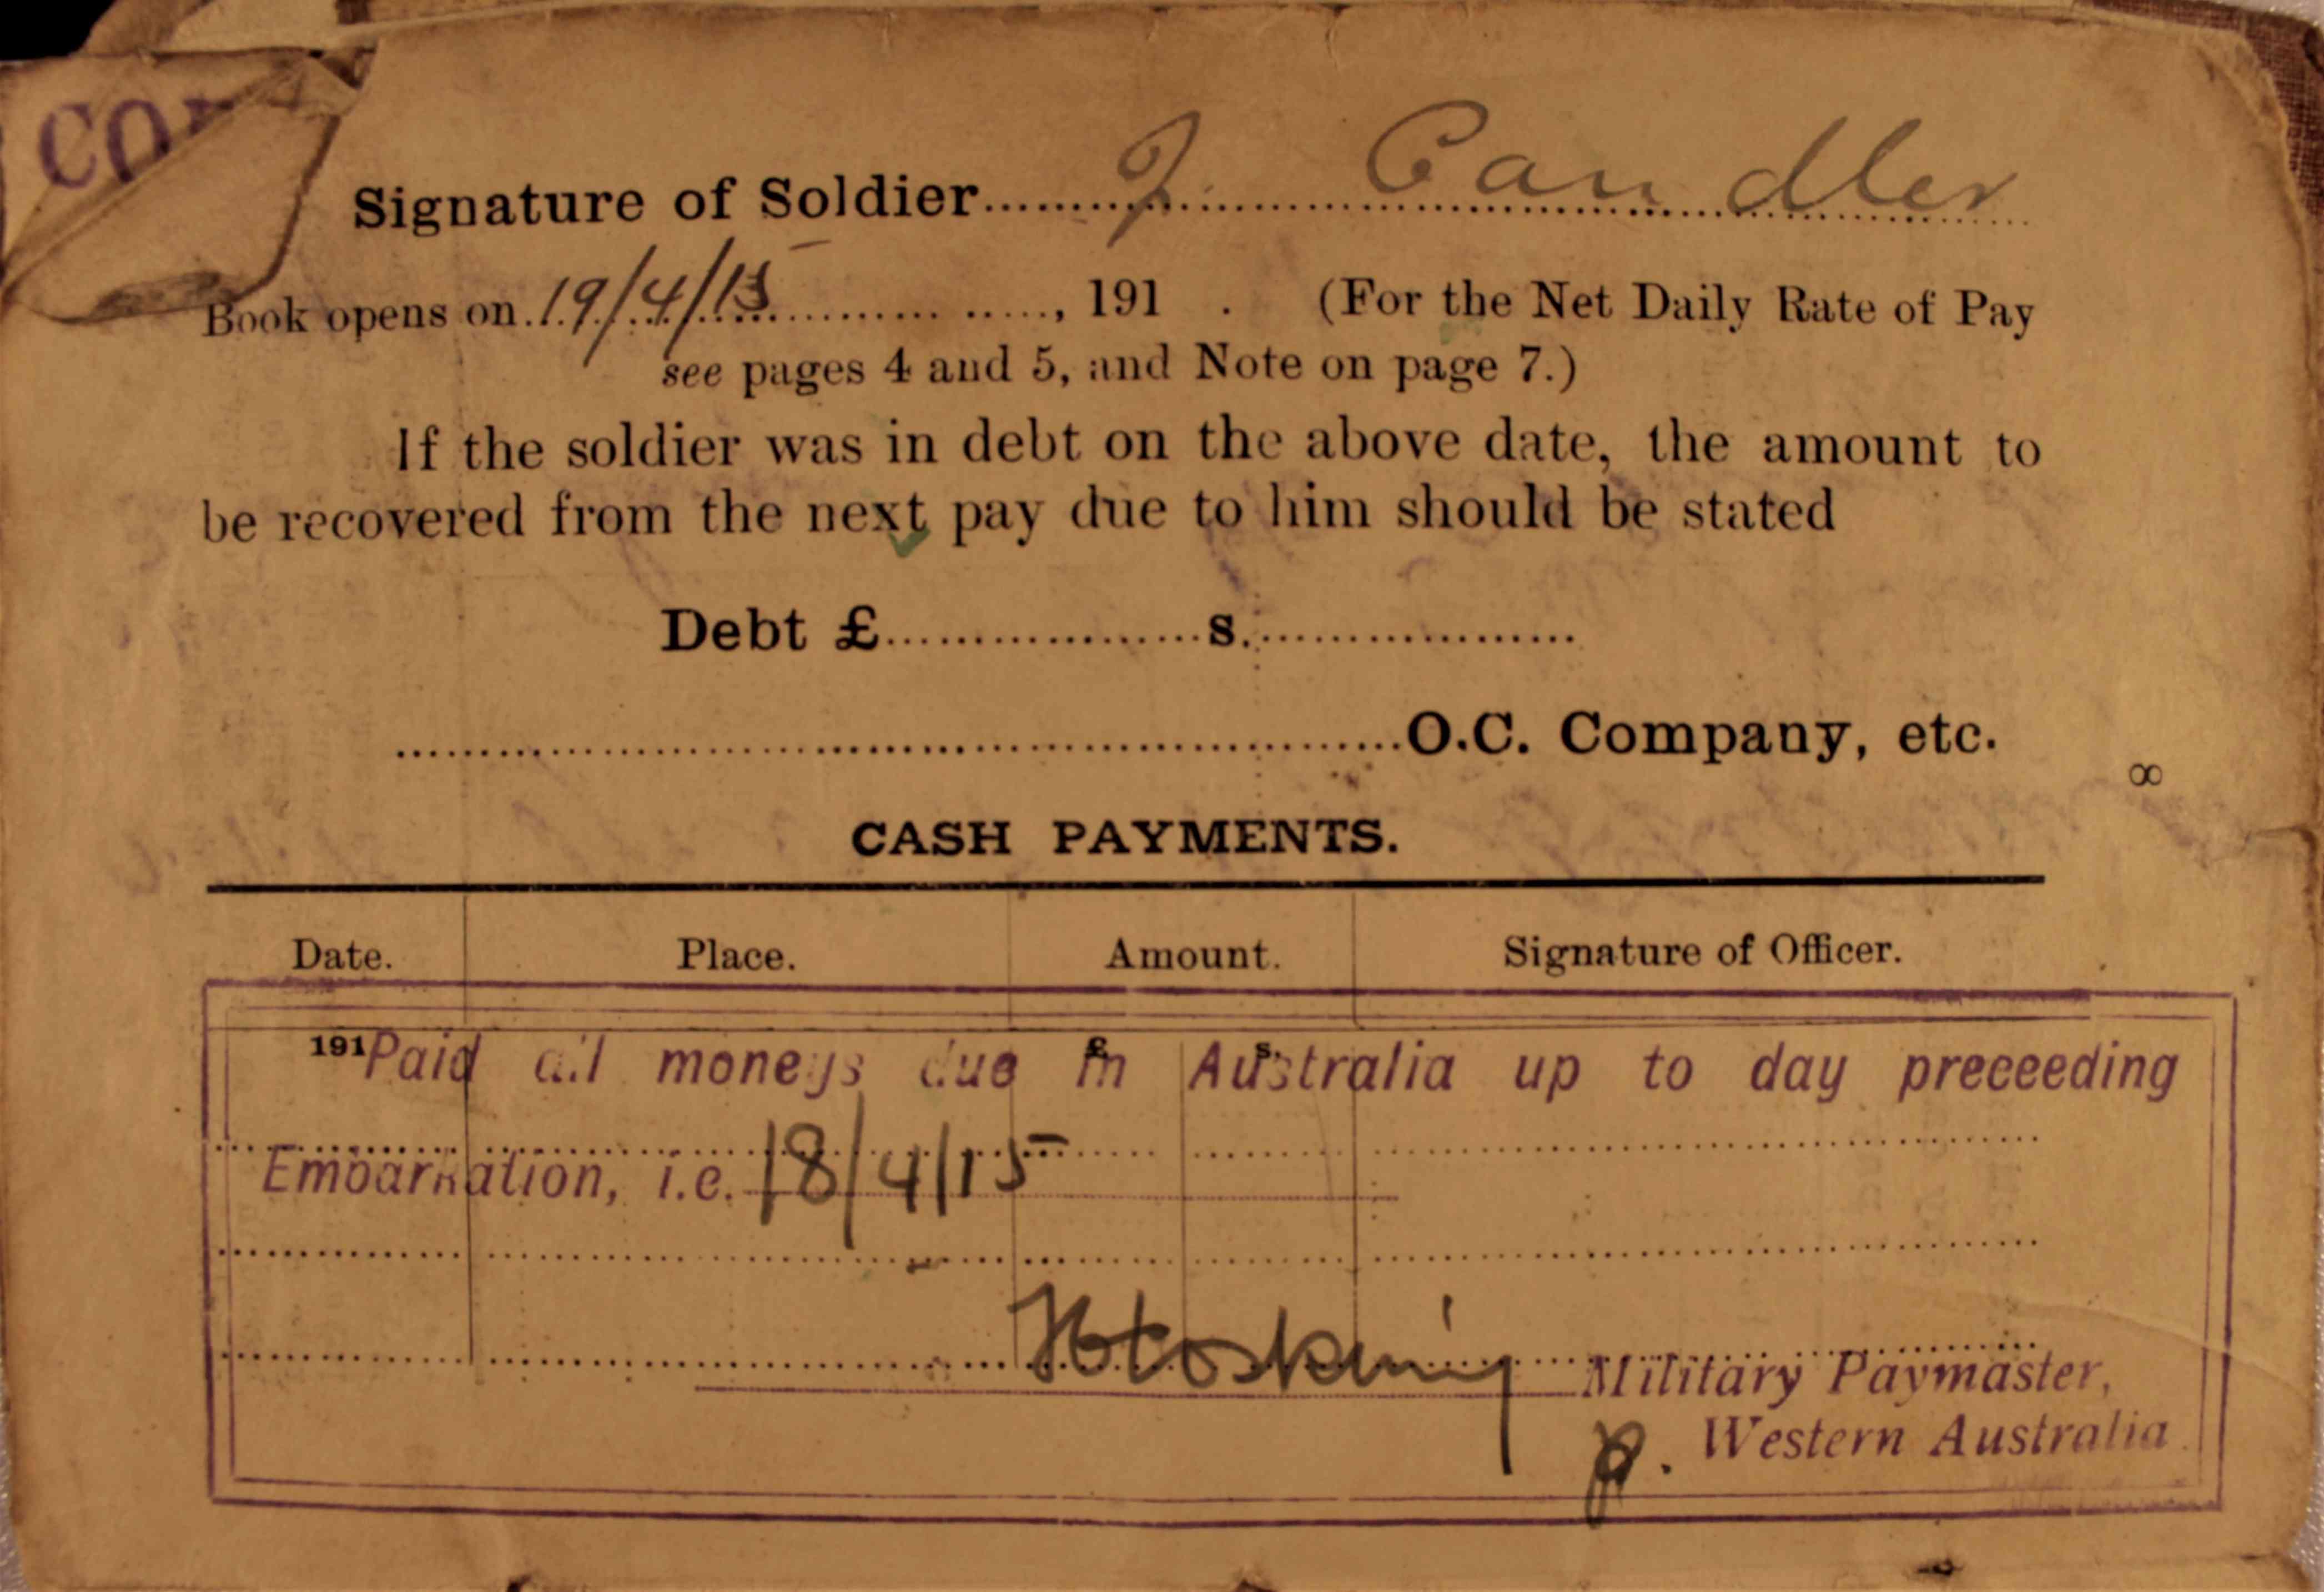 CO
Signature of Soldier J. Candler
Book opens on 19/4/15, 191 . (For the Net Daily Rate of Pay
see pages 4 and 5, and Note on page 7.)
If the soldier was in debt on the above date, the amount to
be recovered from the next pay due to him should be stated
Debt £ s.
O.C. Company, etc.
8
CASH PAYMENTS.
Date. Place. Amount. Signature of Officer.
191 £ s.
Paid all moneys due in Australia up to day preceeding
Embarkation, i.e. 18/4/15
Military Paymaster,
p. Western Australia